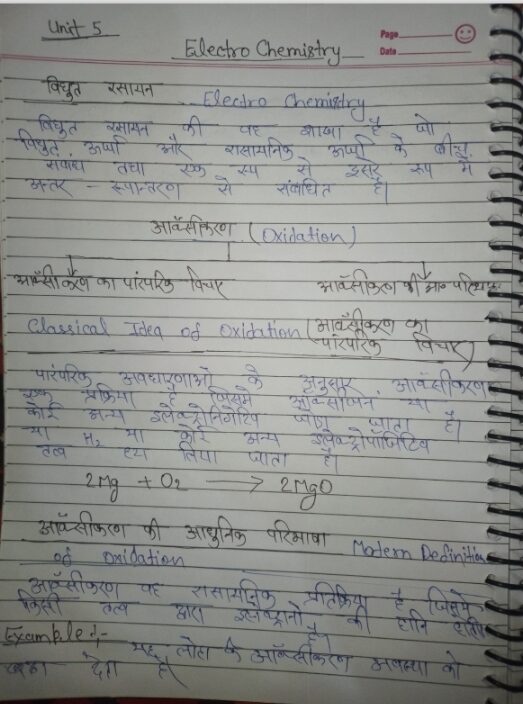 Unit 5
Page
Date
Electro Chemistry
विधुत रसायन Electro Chemistry
विधुत रसायन की वह शाखा है जो
विधुत ऊर्जा और रासायनिक ऊर्जा के बीच
संबंध तथा एक रूप से दूसरे रूप में
अन्तर - रूपान्तरण से संबंधित है।
आक्सीकरण (Oxidation)
आक्सीकरण का पारंपरिक विचार आक्सीकरण की आ०
Classical Idea of Oxidation (आक्सीकरण का
पारंपरिक विचार)
पारंपरिक अवधारणाओं के अनुसार, आक्सीकरण
एक प्रक्रिया है जिसमें आक्सीजन या
कोई अन्य इलेक्ट्रोनिगेटिव जोड़ा जाता है।
या H2 या कोई अन्य इलेक्ट्रोपॉजिटिव
तत्व हटा लिया जाता है।
2Mg + O2 → 2MgO
आक्सीकरण की आधुनिक परिभाषा Modern Definition
of oxidation
आक्सीकरण वह रासायनिक प्रतिक्रिया है जिसमें
किसी तत्व द्वारा इलेक्ट्रानो की हानि होती
है।
Example:- यह लोहा के आक्सीकरण अवस्था को
बढ़ा देता है।